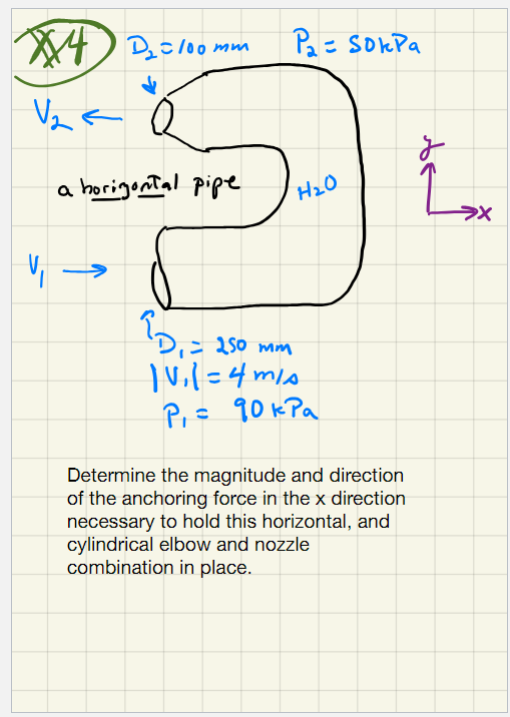 XX4
D₂ = 100 mm P₂ = 50 kPa
V₂
a horizontal pipe H₂O
y
x
V₁
D₁ = 250 mm
|V₁| = 4 m/s
P₁ = 90 kPa
Determine the magnitude and direction
of the anchoring force in the x direction
necessary to hold this horizontal, and
cylindrical elbow and nozzle
combination in place.